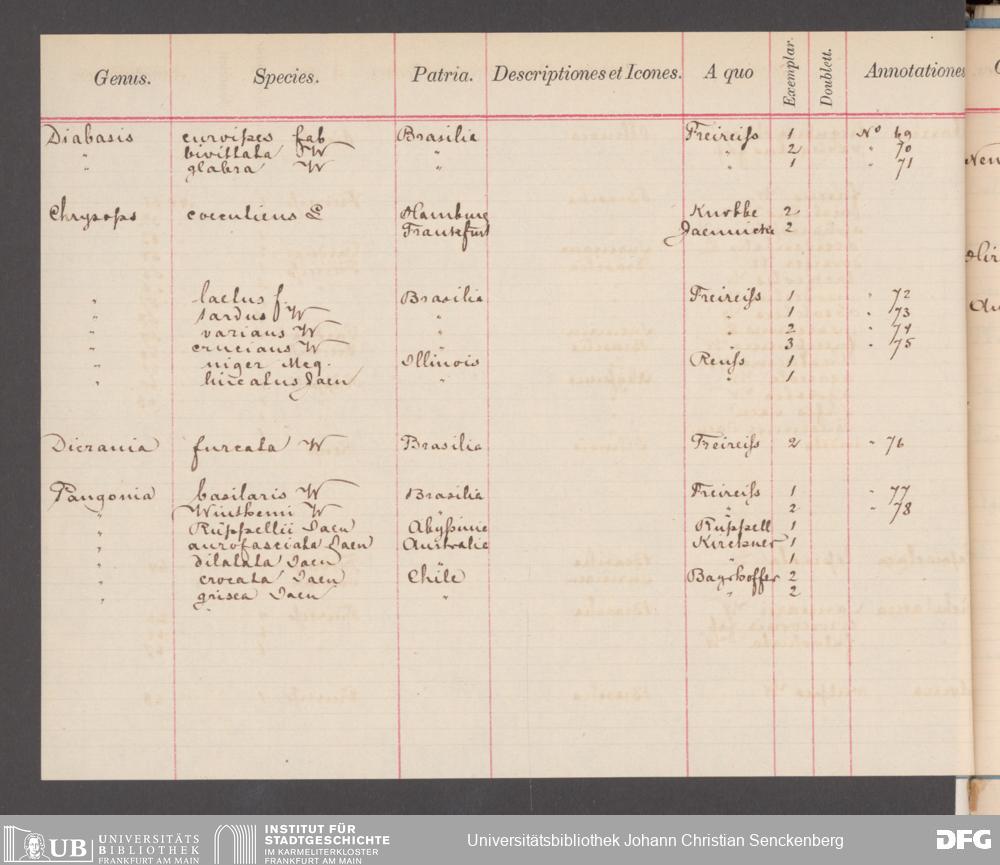 Genus. Species. Patria. Descriptiones et Icones. A quo Exemplar. Doublett. Annotationes
Diabasis curvipes fab Brasilia Freireiss 1 No 69
" bivittata W " " 2 " 70
" glabra W " " 1 " 71
Chrysops coecutiens L Hamburg 2
Frankfurt Jaennicke 2
" laetus f. Brasilia Freireiss 1 " 72
" tardus W " " 1 " 73
" varians W " " 2 " 74
" crucians W " " 3 " 75
" niger Meg. Illinois Reuss 1
" lineatus Jaen " " 1
Dicrania furcata W Brasilia Freireiss 2 " 76
Pangonia basilaris W Brasilia Freireiss 1 " 77
" Winthemi W " 2 " 78
" Rüppellii Jaen Abyssinie Rüppell 1
" aurofasciata Jaen Australie Kirchner 1
" dilatata Jaen " 1
" crocata Jaen Chile Bayrhoffer 2
" grisea Jaen " " 2
UB UNIVERSITÄTS
BIBLIOTHEK
FRANKFURT AM MAIN
INSTITUT FÜR
STADTGESCHICHTE
IM KARMELITERKLOSTER
FRANKFURT AM MAIN
Universitätsbibliothek Johann Christian Senckenberg
DFG